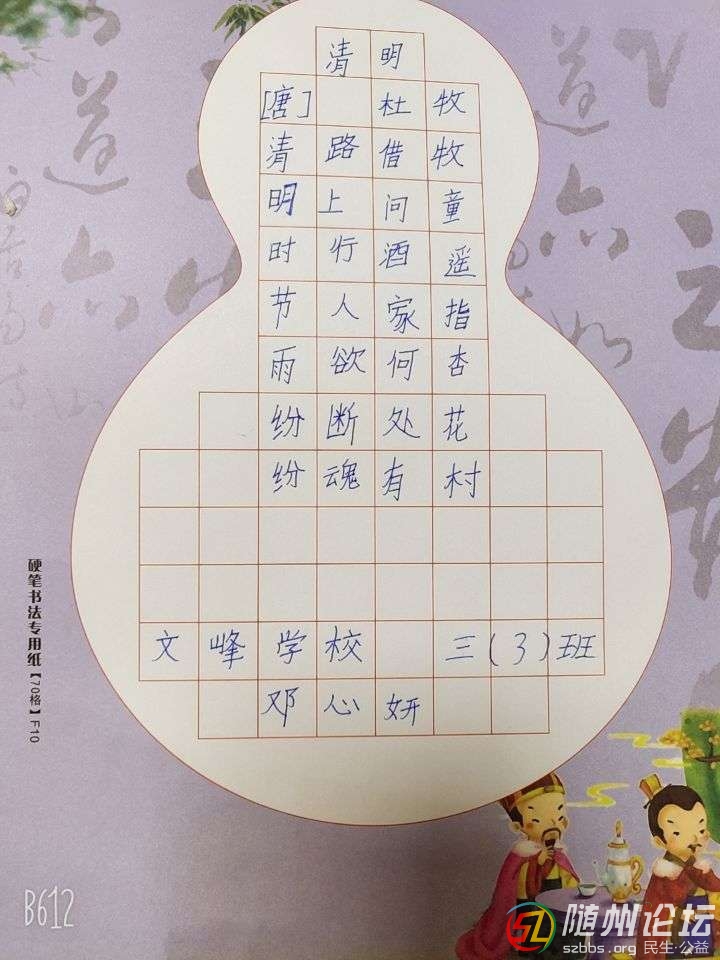 清明
[唐] 杜牧
清明时节雨纷纷
路上行人欲断魂
借问酒家何处有
牧童遥指杏花村
文峰学校 三(3)班
邓心妍
硬笔书法专用纸【70格】F10
B612
随州论坛
szbbs.org 民生·公益